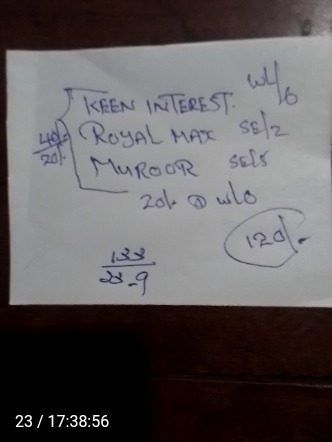 KEEN INTEREST. W4/6
40/-
20/-
ROYAL MAX SE/2
MUROOR SE/5
20/- @ W/O
120/-
133
23-9
23 / 17:38:56